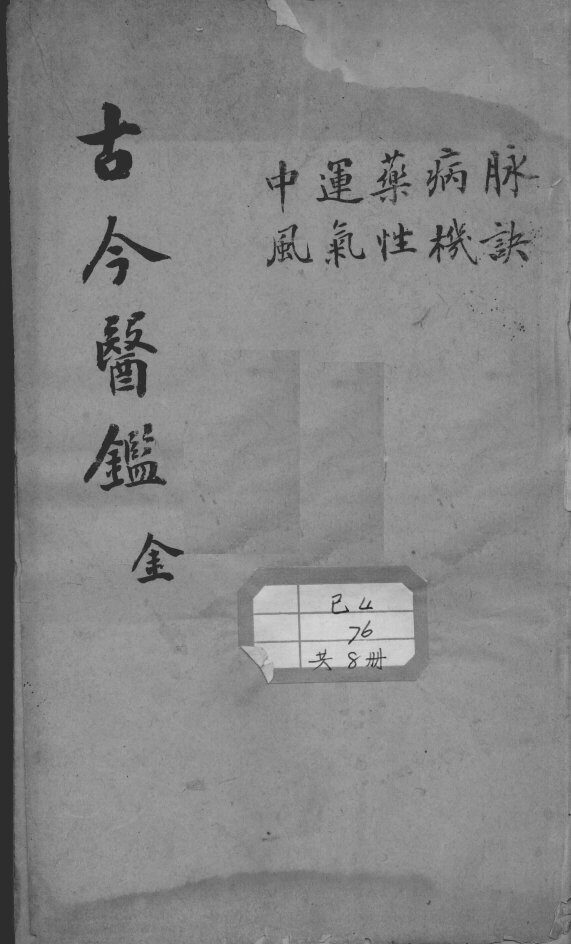 脉訣
病機
藥性
運氣
中風
古今醫鑑 金
己4
76
共8册